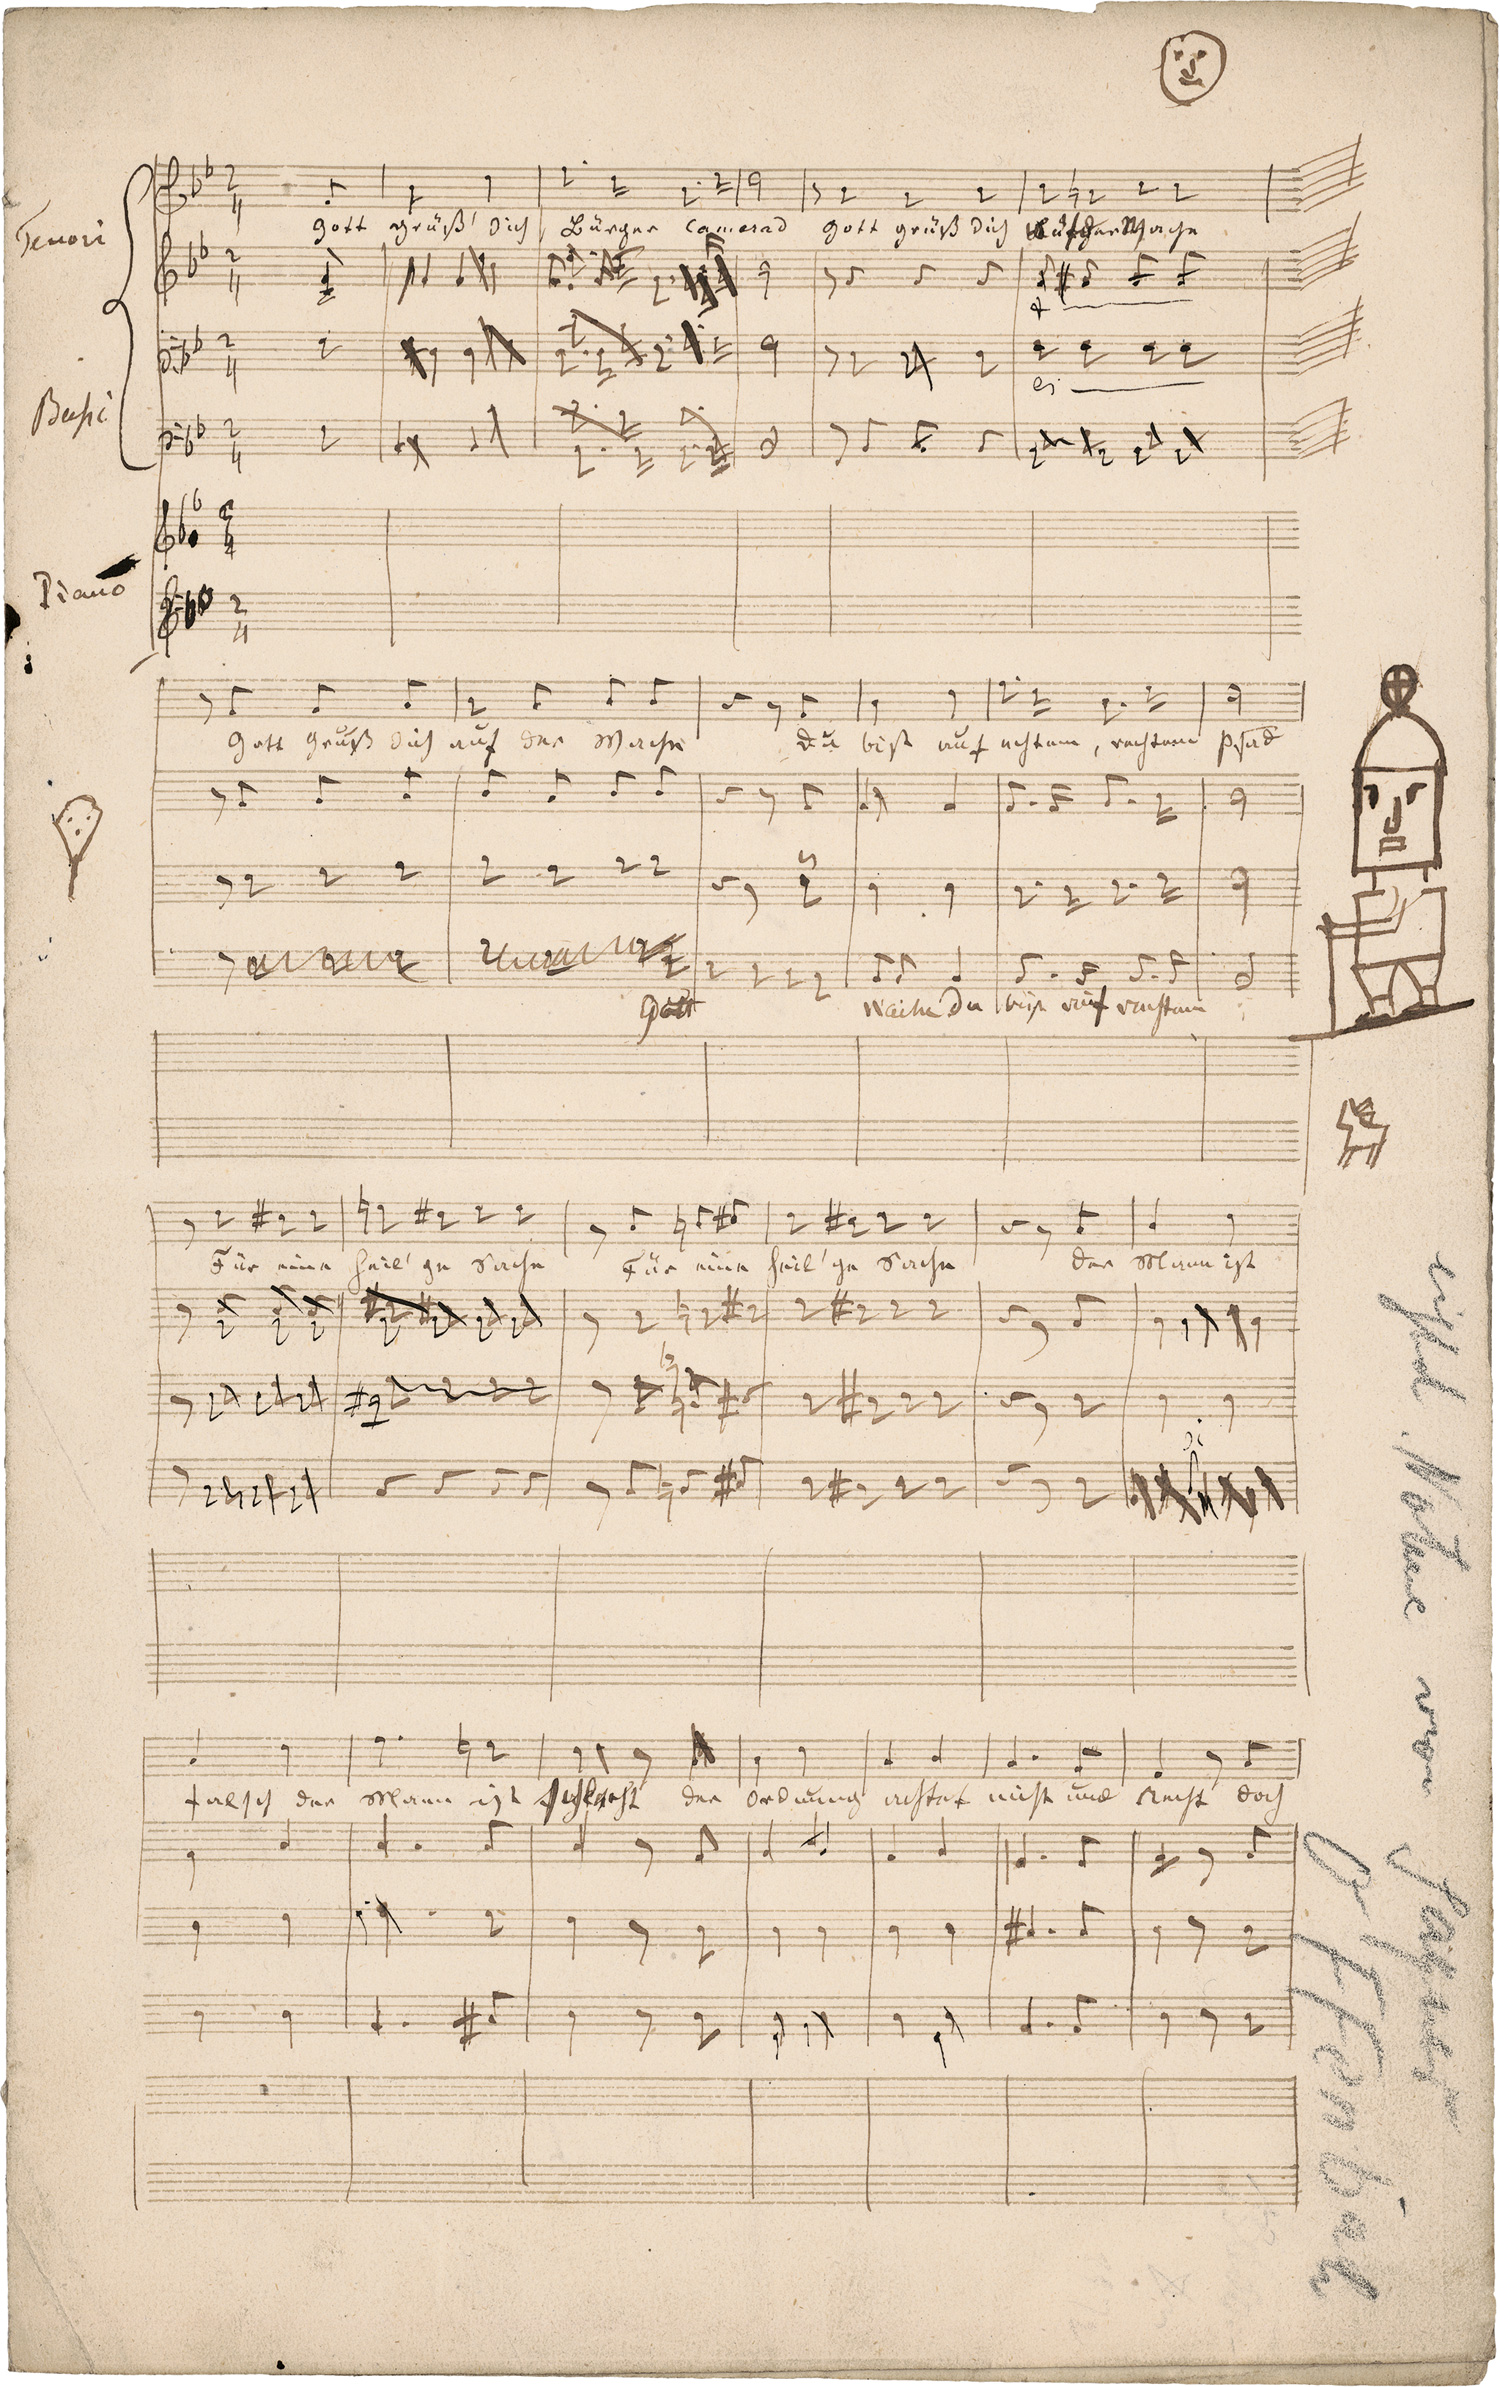 Tenori
Gott grüß' dich Bürger Camerad Gott grüß dich auf der Wache
Bassi
Piano
Gott grüß dich auf der Wache Du bist auf echtem, rechtem Pfad
Gott Wache Du bist auf rechtem
Für eine heil'ge Sache Für eine heil'ge Sache der Mann ist
falsch der Mann ist schlecht der Ordnung achtet nicht und Recht doch
von
Offenbach